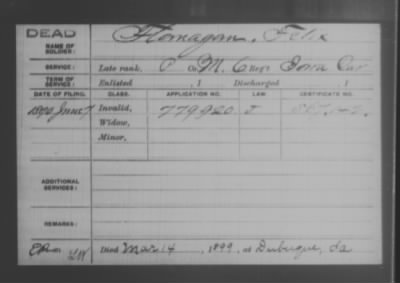 DEAD
NAME OF SOLDIER:
Flanagan, Felix
SERVICE:
Late rank, P Co. M, 6 Reg't Iowa Cav
TERM OF SERVICE:
Enlisted , 1 Discharged , 1
DATE OF FILING. CLASS. APPLICATION NO. LAW. CERTIFICATE NO.
1890 June 7 Invalid, 779920 J
Widow,
Minor,
ADDITIONAL SERVICES:
REMARKS:
Died Mar 14, 1899, at Dubuque, Ia